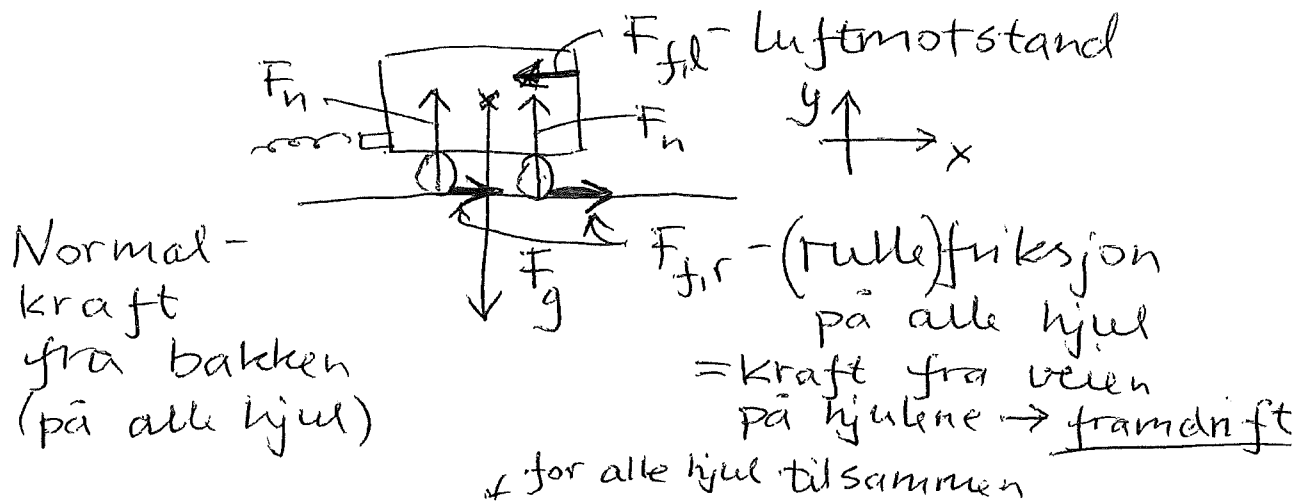 F_f,l - Luftmotstand
F_n
F_n
y
x
Normal-
kraft
fra bakken
(på alle hjul)
F_g
F_f,r - (rulle)friksjon
på alle hjul
= kraft fra veien
på hjulene → framdrift
↙ for alle hjul tilsammen